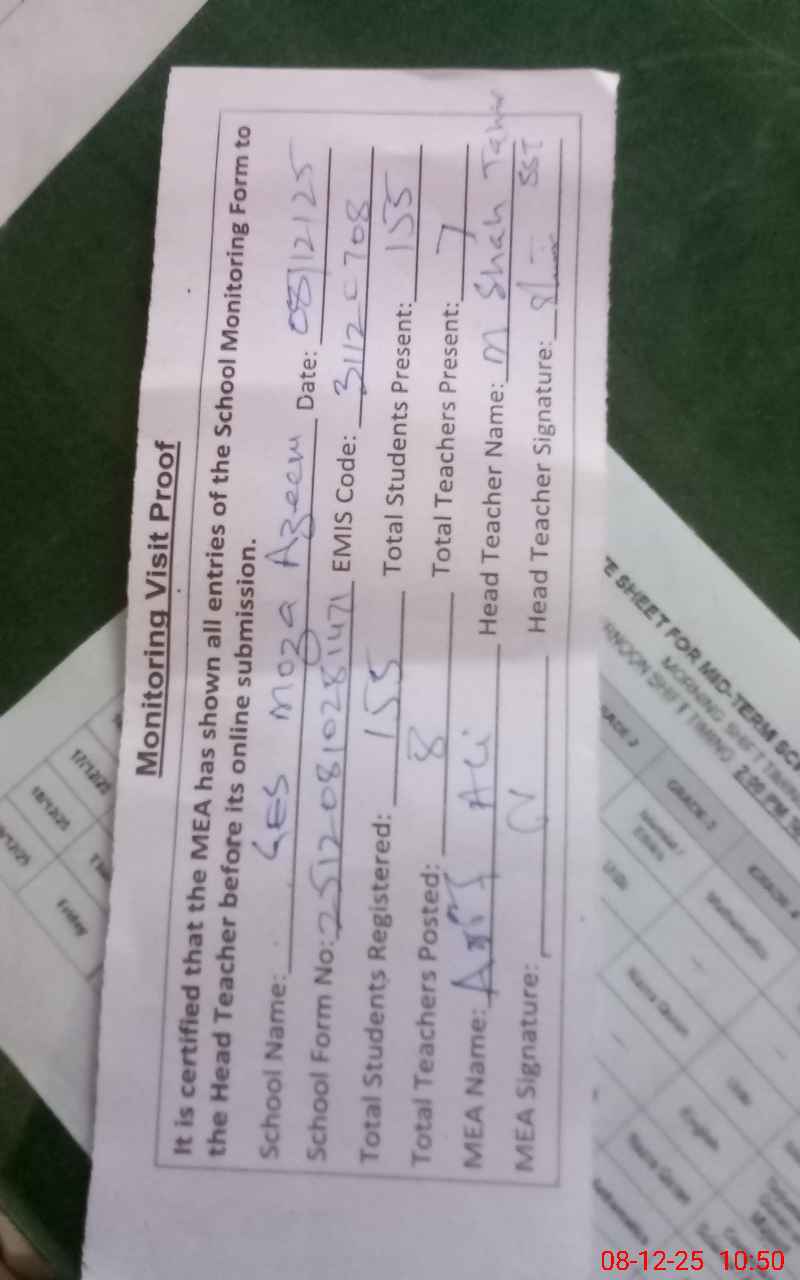 Monitoring Visit Proof
It is certified that the MEA has shown all entries of the School Monitoring Form to
the Head Teacher before its online submission.
School Name: GES Moza Azeem Date: 08/12/25
School Form No: 25120810281471 EMIS Code: 31120708
Total Students Registered: 155 Total Students Present: 155
Total Teachers Posted: 8 Total Teachers Present: 7
MEA Name: Ali Head Teacher Name: M Shah Tahir
MEA Signature: Head Teacher Signature: SST
E SHEET FOR MID-TERM SC
MORNING SHIFT TIMING
RNOON SHIFT TIMING 2:00 PM
GRADE 2 GRADE 3 GRADE 4
Mathematics
Urdu
Nazra Quran
English
Nazra Quran
17/12/25
18/12/25
Friday
08-12-25 10:50